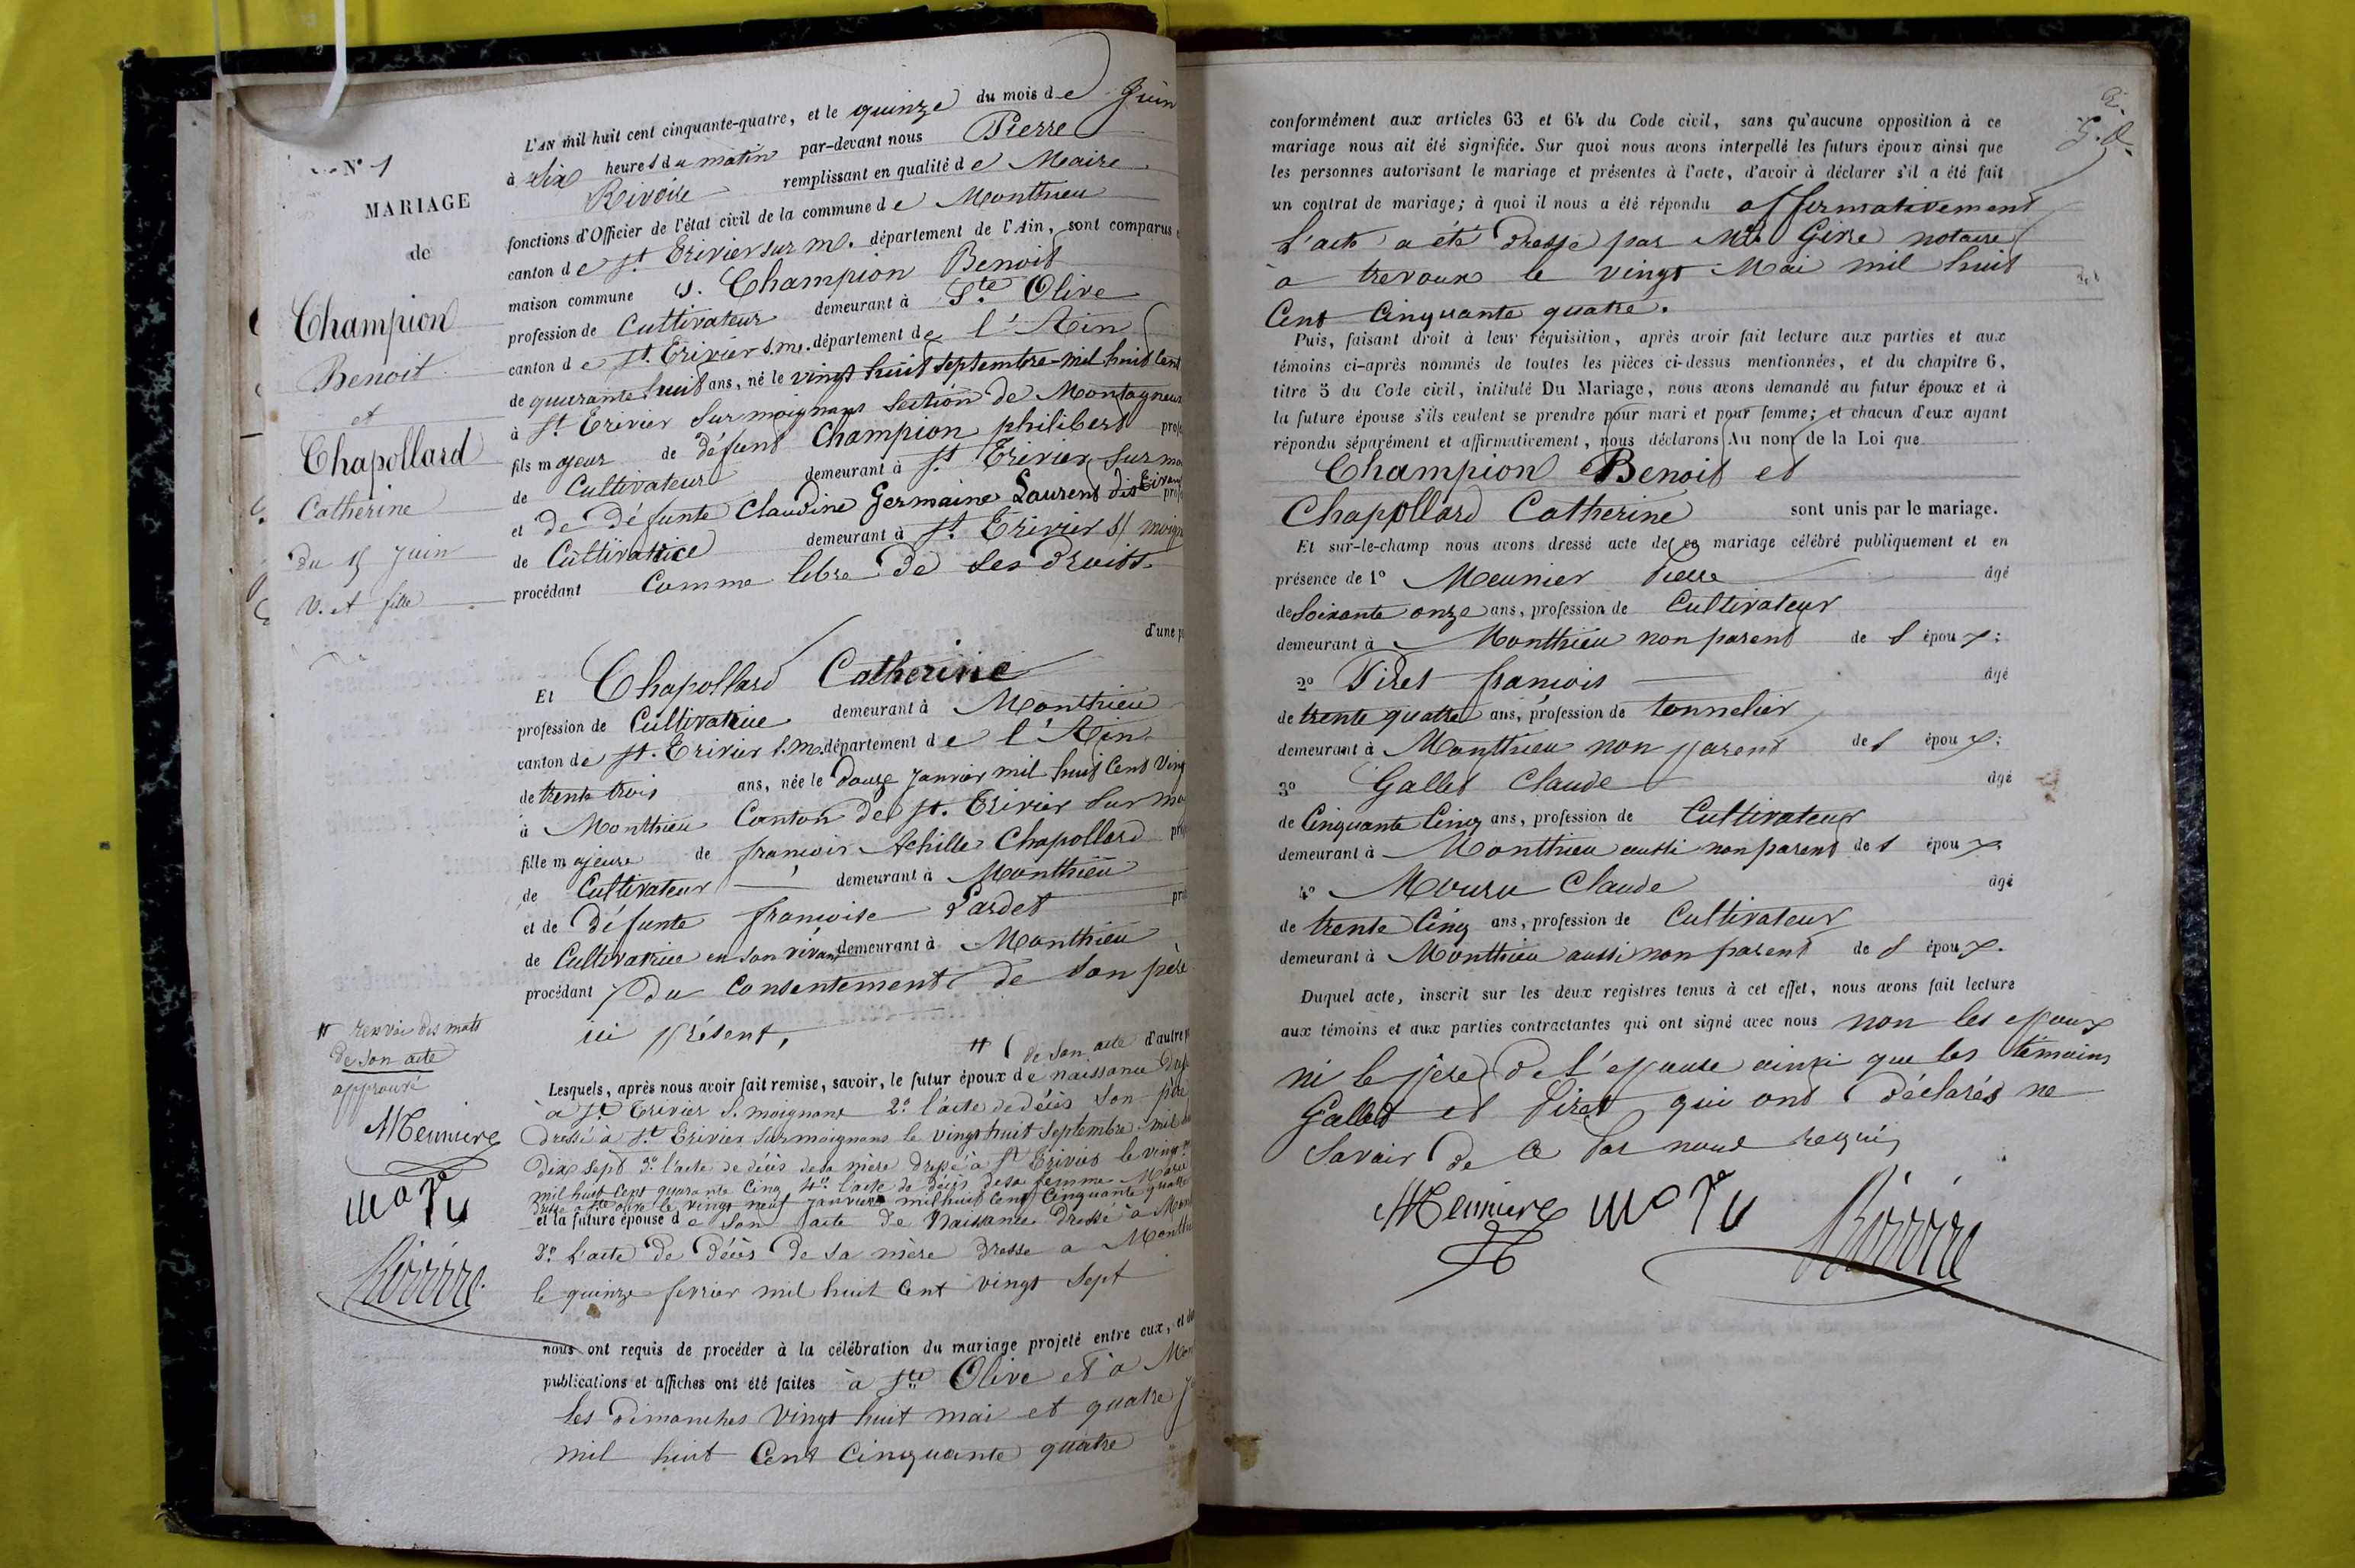 N° 1
MARIAGE
de
Champion
Benoit
et
Chapollard
Catherine
du 15 Juin
V. et fille
L'AN mil huit cent cinquante-quatre, et le quinze du mois de Juin
à dix heures du matin par-devant nous Pierre
Rivoire remplissant en qualité de Maire
fonctions d'Officier de l'état civil de la commune de Monthieu
canton de St Trivier sur mo. département de l'Ain, sont comparus
maison commune Champion Benoit
profession de Cultivateur demeurant à Ste Olive
canton de St. Trivier s. mo. département de l'Ain
de quarante huit ans, né le vingt huit septembre mil huit Cent
à St Trivier sur moignans section de Montagneux
fils majeur de défunt Champion philibert
de Cultivateur demeurant à St Trivier sur mo
et de défunte Claudine Germaine Laurent dit
de Cultivatrice demeurant à St Trivier s/ moign
procédant Comme libre de ses droits
d'une p
Et Chapollard Catherine
profession de Cultivatrice demeurant à Monthieu
canton de St. Trivier s. m. département de l'Ain
de trente trois ans, née le douze Janvier mil huit Cent Ving
à Monthieu Canton de St. Trivier sur mo
fille majeure de françois Achille Chapollard
de Cultivateur demeurant à Monthieu
et de défunte françoise Lardet
de Cultivatrice en son vivant demeurant à Monthieu
procédant du Consentement de son père
ici présent,
# (de son acte d'autre p
Lesquels, après nous avoir fait remise, savoir, le futur époux de naissance
à St Trivier s. moignans 2° l'acte de décès son père
dressé à St Trivier sur moignans le vingt huit Septembre mil
dix sept 3° l'acte de décès de sa mère dressé à St Trivier le vingt
mil huit Cent quarante Cinq 4° l'acte de décès de sa femme
dressé à Ste olive le vingt neuf Janvier mil huit Cent Cinquante quatre
et la future épouse de son acte de Naissance dressé à Mon
2° l'acte de décès de sa mère dressé a Monthi
le quinze fevrier mil huit Cent vingt sept
nous ont requis de procéder à la célébration du mariage projeté entre eux, et
publications et affiches ont été faites à Ste Olive et à Mon
les dimanches Vingt huit mai et quatre
mil huit Cent Cinquante quatre
# renvoi des mots
de son acte
approuvé
Meuniere
moru
Rivoire
conformément aux articles 63 et 64 du Code civil, sans qu'aucune opposition à ce
mariage nous ait été signifiée. Sur quoi nous avons interpellé les futurs époux ainsi que
les personnes autorisant le mariage et présentes à l'acte, d'avoir à déclarer s'il a été fait
un contrat de mariage; à quoi il nous a été répondu affirmativement
l'acte a été dressé par Gire notaire
a trevoux le vingt Mai mil huit
Cent Cinquante quatre.
Puis, faisant droit à leur réquisition, après avoir fait lecture aux parties et aux
témoins ci-après nommés de toutes les pièces ci-dessus mentionnées, et du chapitre 6,
titre 5 du Code civil, intitulé Du Mariage, nous avons demandé au futur époux et à
la future épouse s'ils veulent se prendre pour mari et pour femme; et chacun d'eux ayant
répondu séparément et affirmativement, nous déclarons Au nom de la Loi que
Champion Benoit et
Chapollard Catherine sont unis par le mariage.
Et sur-le-champ nous avons dressé acte de ce mariage célébré publiquement et en
présence de 1° Meunier Pierre âgé
de Soixante onze ans, profession de Cultivateur
demeurant à Monthieu non parent de s époux;
2° Piret françois âgé
de trente quatre ans, profession de tonnelier
demeurant à Monthieu non parent de s époux;
3° Gallet Claude âgé
de Cinquante Cinq ans, profession de Cultivateur
demeurant à Monthieu aussi non parent de s époux
4° Mouru Claude âgé
de trente Cinq ans, profession de Cultivateur
demeurant à Monthieu aussi non parent de s époux.
Duquel acte, inscrit sur les deux registres tenus à cet effet, nous avons fait lecture
aux témoins et aux parties contractantes qui ont signé avec nous non les epoux
ni le père de l'epouse ainsi que les témoins
Gallet et Piret qui ont déclarés ne
savoir de ce par nous requis
Meuniere moru Rivoire